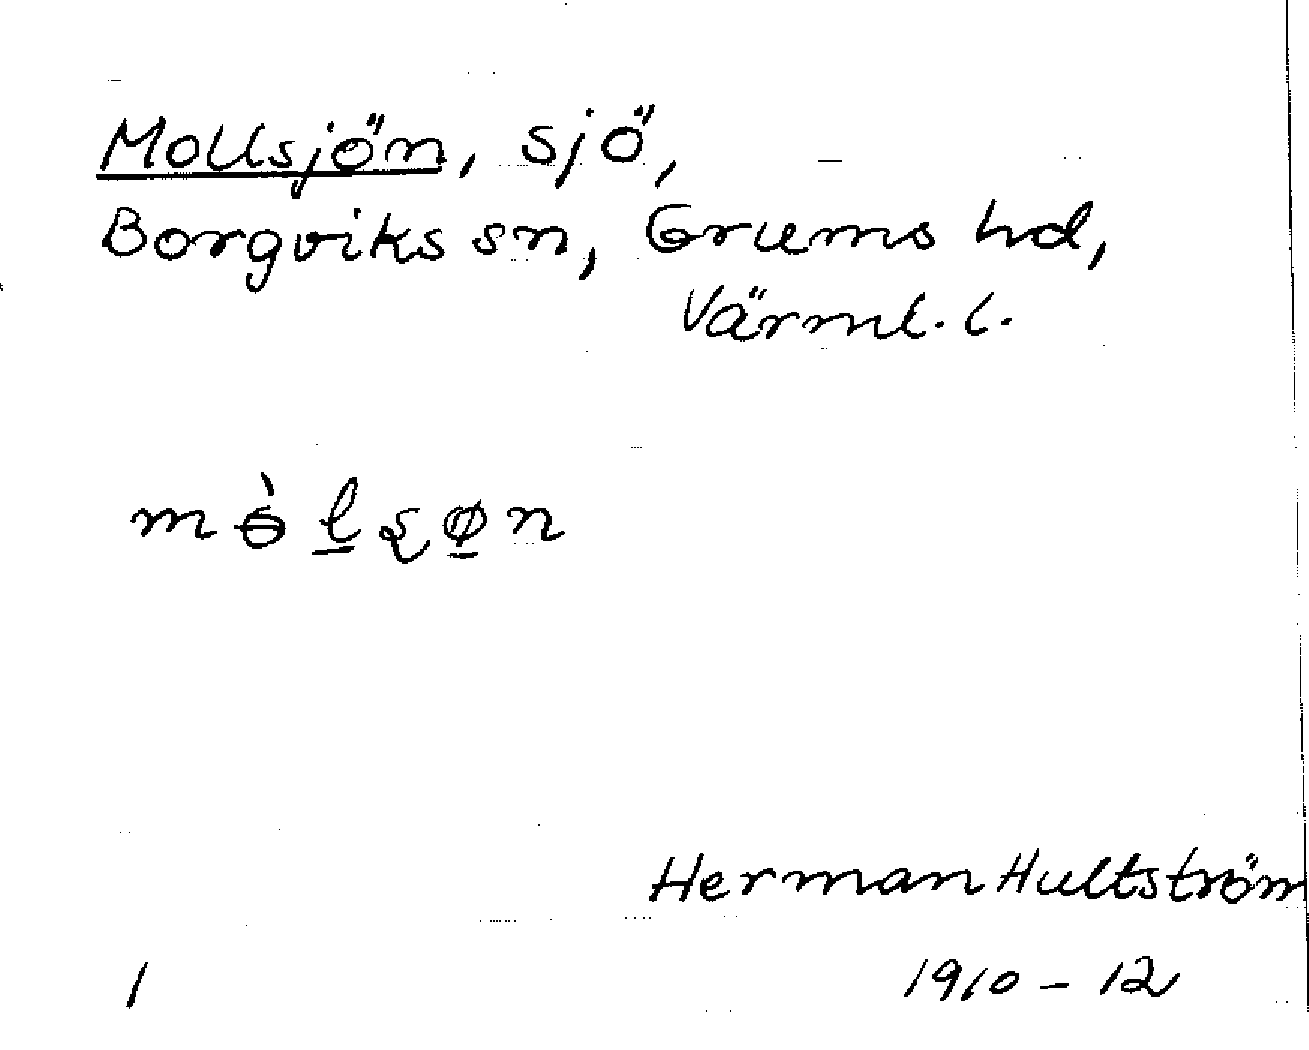 Mollsjön, sjö,
Borgviks sn, Grums hd,
Värml. l.
mɵ̀l̠ʂø̠n
Herman Hultström
1 1910-12